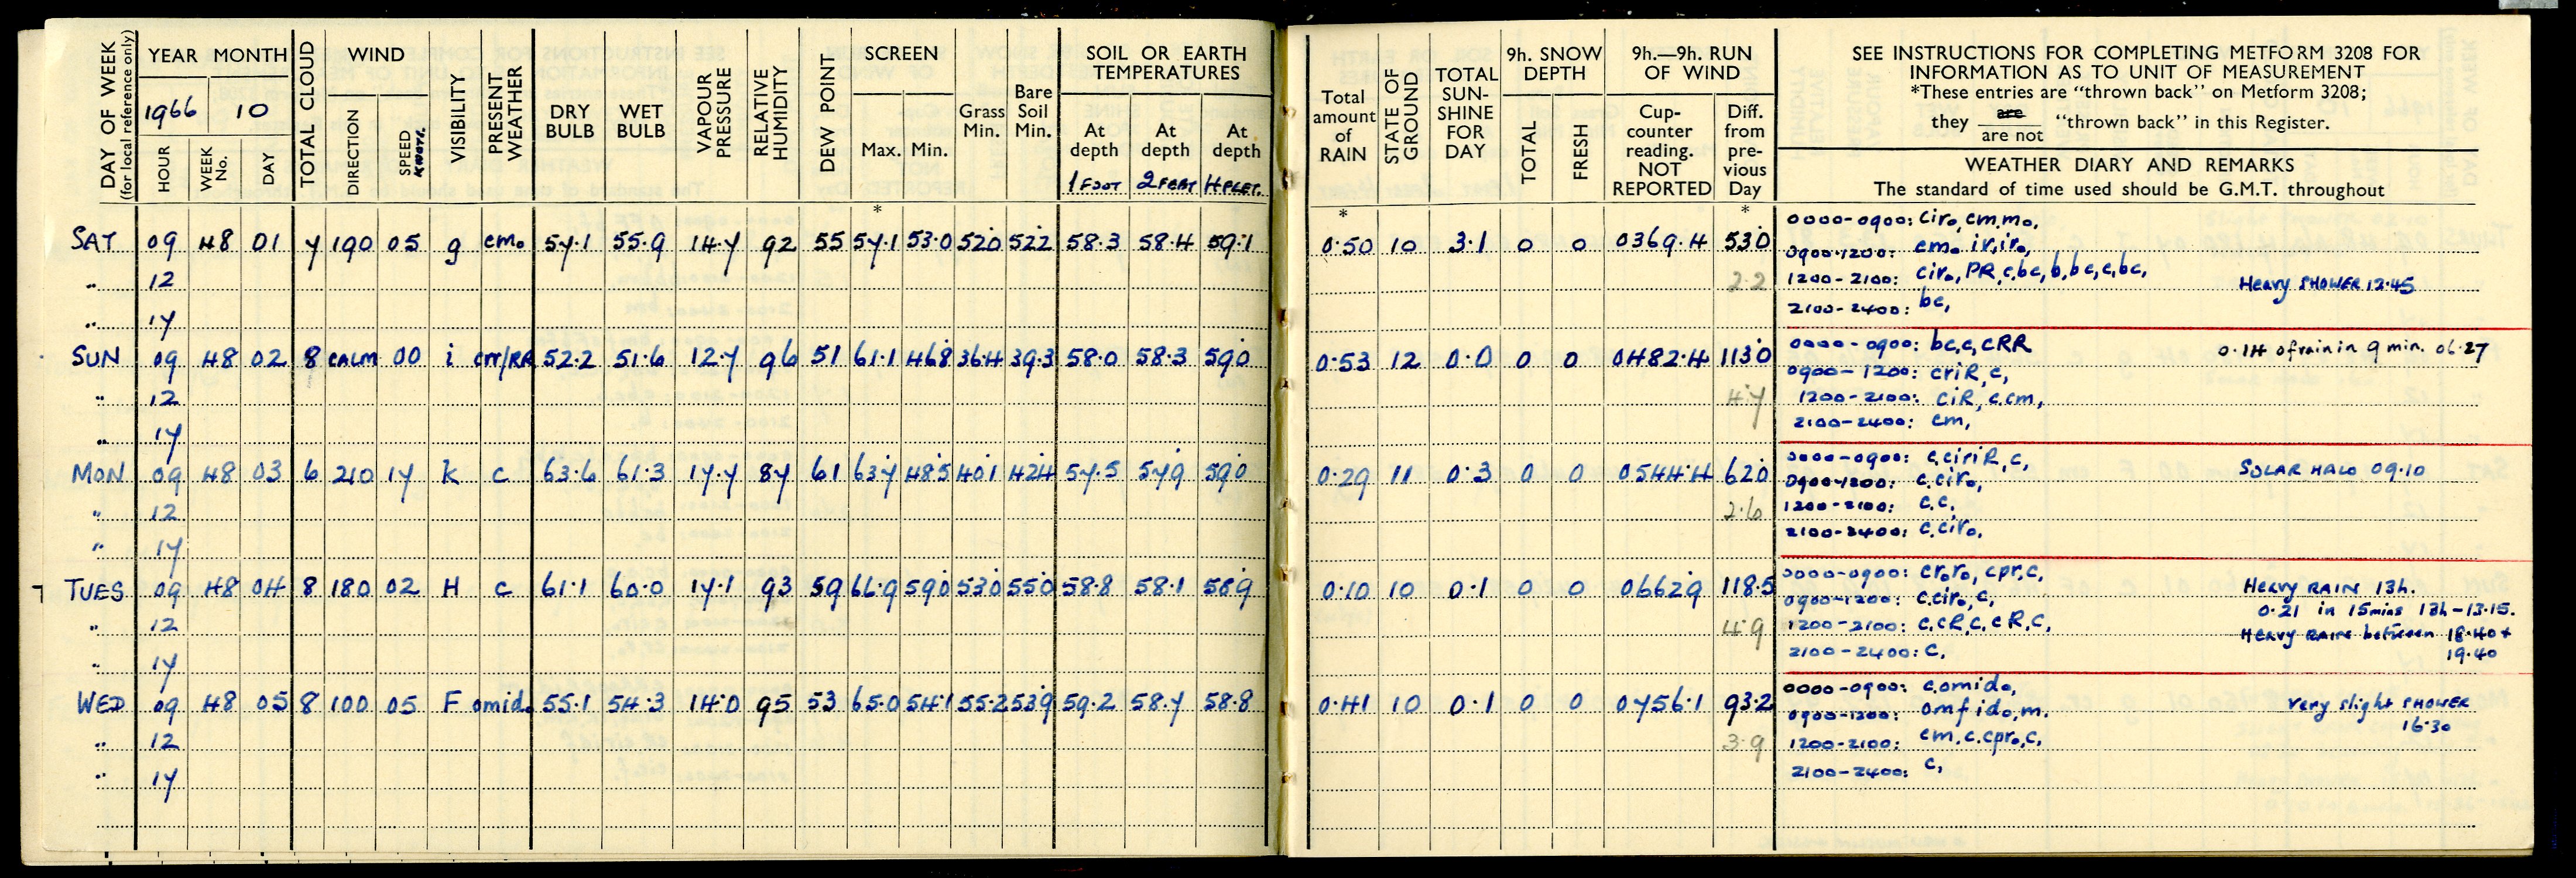 DAY OF WEEK (for local reference only) YEAR MONTH TOTAL CLOUD WIND VISIBILITY PRESENT WEATHER DRY BULB WET BULB VAPOUR PRESSURE RELATIVE HUMIDITY DEW POINT SCREEN Grass Min. Bare Soil Min. SOIL OR EARTH TEMPERATURES
1966 10
HOUR WEEK No. DAY DIRECTION SPEED KNOTS. Max. Min. At depth At depth At depth
1 FOOT 2 FEET 4 FEET.
Total amount of RAIN STATE OF GROUND TOTAL SUN-SHINE FOR DAY 9h. SNOW DEPTH TOTAL FRESH 9h.—9h. RUN OF WIND Cup-counter reading. NOT REPORTED Diff. from pre-vious Day
SEE INSTRUCTIONS FOR COMPLETING METFORM 3208 FOR
INFORMATION AS TO UNIT OF MEASUREMENT
*These entries are "thrown back" on Metform 3208;
they are / are not "thrown back" in this Register.
WEATHER DIARY AND REMARKS
The standard of time used should be G.M.T. throughout
* * *
SAT 09 48 01 7 190 05 g cm₀ 57.1 55.9 14.7 92 55 57.1 53.0 52.0 52.2 58.3 58.4 59.1 0.50 10 3.1 0 0 0369.4 53.0
0000-0900: cir₀, cm,m₀,
0900-1200: cm₀ ir,ir₀,
" 12 2.2
1200-2100: cir₀, PR, c,bc, b, bc, c, bc, Heavy SHOWER 12.45
2100-2400: bc,
" 17
SUN 09 48 02 8 CALM 00 i crr/RR 52.2 51.6 12.7 96 51 61.1 46.8 36.4 39.3 58.0 58.3 59.0 0.53 12 0.0 0 0 0482.4 113.0
0000-0900: bc,c,cRR 0.14 of rain in 9 min. 06.27
0900-1200: criR, c,
" 12 4.7
1200-2100: ciR, c.cm,
2100-2400: cm,
" 17
MON 09 48 03 6 210 17 k c 63.6 61.3 17.7 87 61 63.7 48.5 40.1 42.4 57.5 57.9 59.0 0.29 11 0.3 0 0 0544.4 62.0
0000-0900: c,ciriR, c, SOLAR HALO 09.10
0900-1200: c.cir₀,
" 12 2.6
1200-2100: c.c,
2100-2400: c.cir₀,
" 17
7 TUES 09 48 04 8 180 02 H c 61.1 60.0 17.1 93 59 66.9 59.0 53.0 55.0 58.8 58.1 58.9 0.10 10 0.1 0 0 0662.9 118.5
0000-0900: cr₀r₀, cpr,c, Heavy RAIN 13h.
0900-1200: c.cir₀, c, 0.21 in 15mins 13h-13.15.
" 12 4.9
1200-2100: c,cR,c,cR,c, Heavy RAIN between 18.40 +
2100-2400: c, 19.40
" 17
WED 09 48 05 8 100 05 F omid₀ 55.1 54.3 14.0 95 53 65.0 54.1 55.2 53.9 59.2 58.7 58.8 0.41 10 0.1 0 0 0756.1 93.2
0000-0900: c.omid₀, Very slight SHOWER
0900-1200: omf id₀,m. 16.30
" 12 3.9
1200-2100: cm,c.cpr₀,c,
2100-2400: c,
" 17